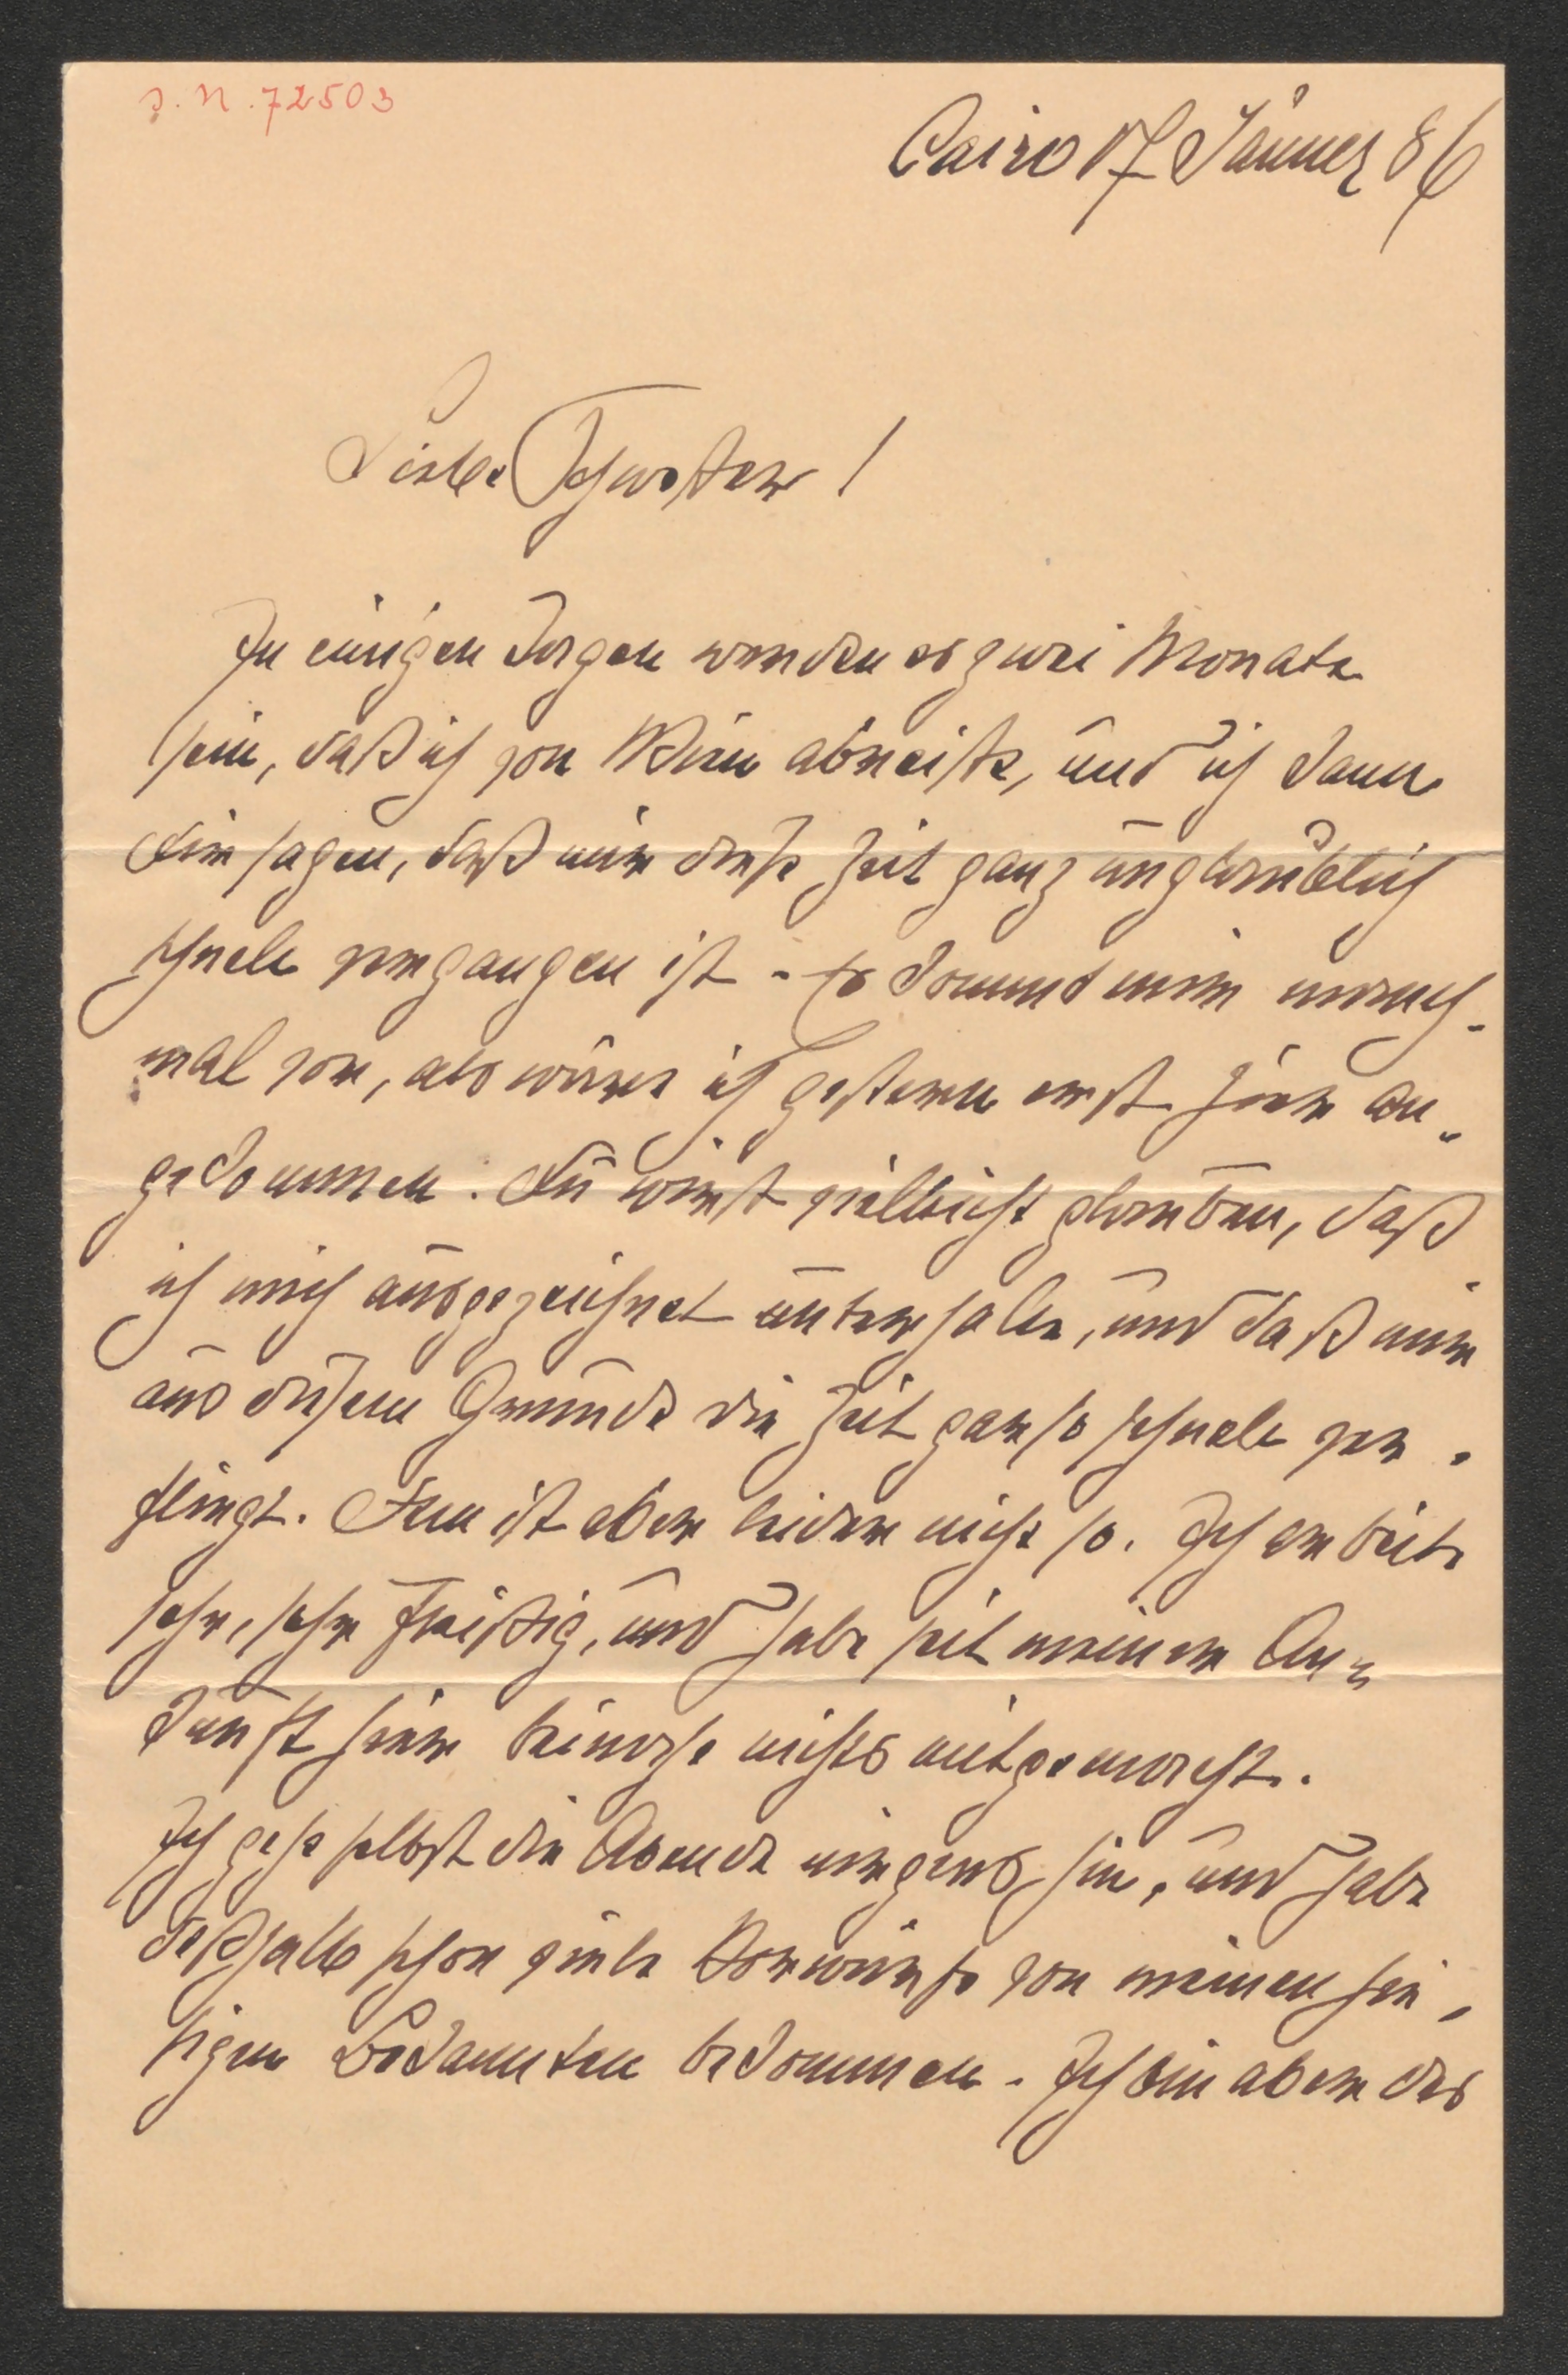 J. N. 72503
Cairo 17 Jänner 86
Liebe Schwester!
In einigen Tagen werden es zwei Monate
sein, daß ich von Wien abreiste, und ich kann
Dir sagen, daß mir diese Zeit ganz unglaublich
schnell vergangen ist. Es kommt mir manch-
mal vor, als wäre ich gestern erst hier an-
gekommen. Du wirst vielleicht glauben, daß
ich mich ausgezeichnet unterhalte, und daß mir
aus diesem Grunde die Zeit gar so schnell ver-
fliegt. Dem ist aber leider nicht so. Ich arbeite
sehr, sehr fleißig, und habe seit meiner An-
kunft hier beinahe nichts mitgemacht.
Ich gehe selbst die Abende nirgens hin, und habe
deßhalb schon viele Vorwürfe von meinen hie-
sigen Bekannten bekommen. Ich bin aber des